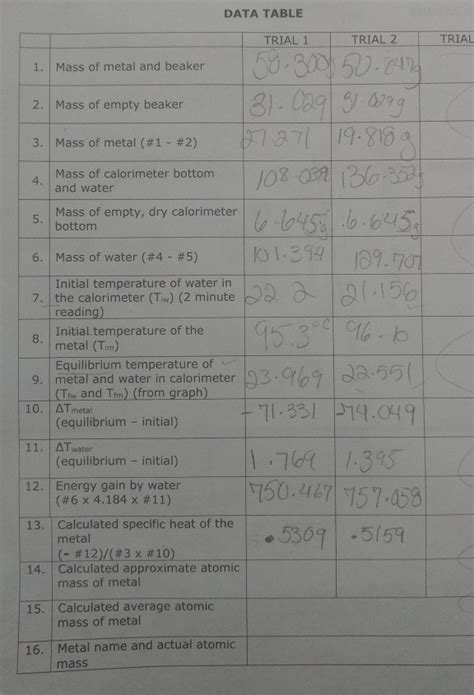 DATA TABLE
TRIAL 1 TRIAL 2 TRIAL
1. Mass of metal and beaker 58.300g 50.847g
2. Mass of empty beaker 31.029 31.029g
3. Mass of metal (#1 - #2) 27.271 19.818g
4. Mass of calorimeter bottom
and water 108.039 136.352g
5. Mass of empty, dry calorimeter
bottom 6.645g 6.645g
6. Mass of water (#4 - #5) 101.394 129.707
7. Initial temperature of water in
the calorimeter (Tiw) (2 minute
reading) 22.2 21.156
8. Initial temperature of the
metal (Tim) 95.3°C 96.6
9. Equilibrium temperature of
metal and water in calorimeter
(Tfw and Tfm) (from graph) 23.969 22.551
10. ΔTmetal
(equilibrium – initial) -71.331 -74.049
11. ΔTwater
(equilibrium – initial) 1.769 1.395
12. Energy gain by water
(#6 x 4.184 x #11) 750.467 757.058
13. Calculated specific heat of the
metal
(- #12)/(#3 x #10) .5309 .5159
14. Calculated approximate atomic
mass of metal
15. Calculated average atomic
mass of metal
16. Metal name and actual atomic
mass